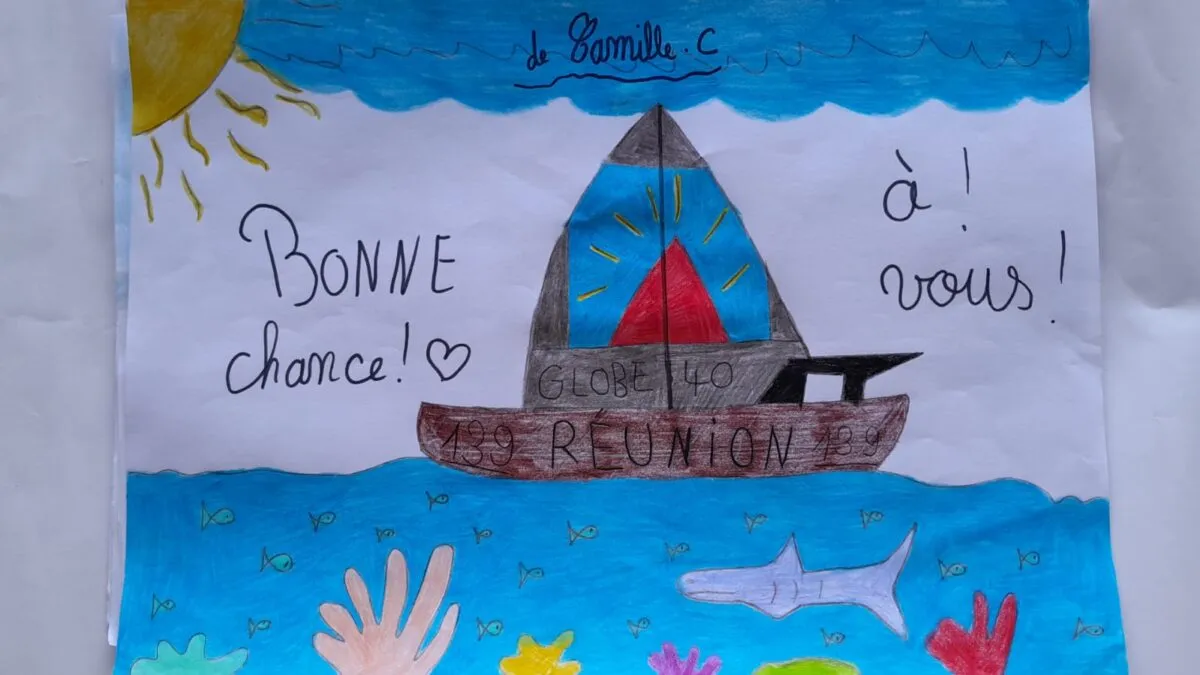 de Camille.C
BONNE
chance!
à!
vous!
GLOBE 40
139 RÉUNION 139